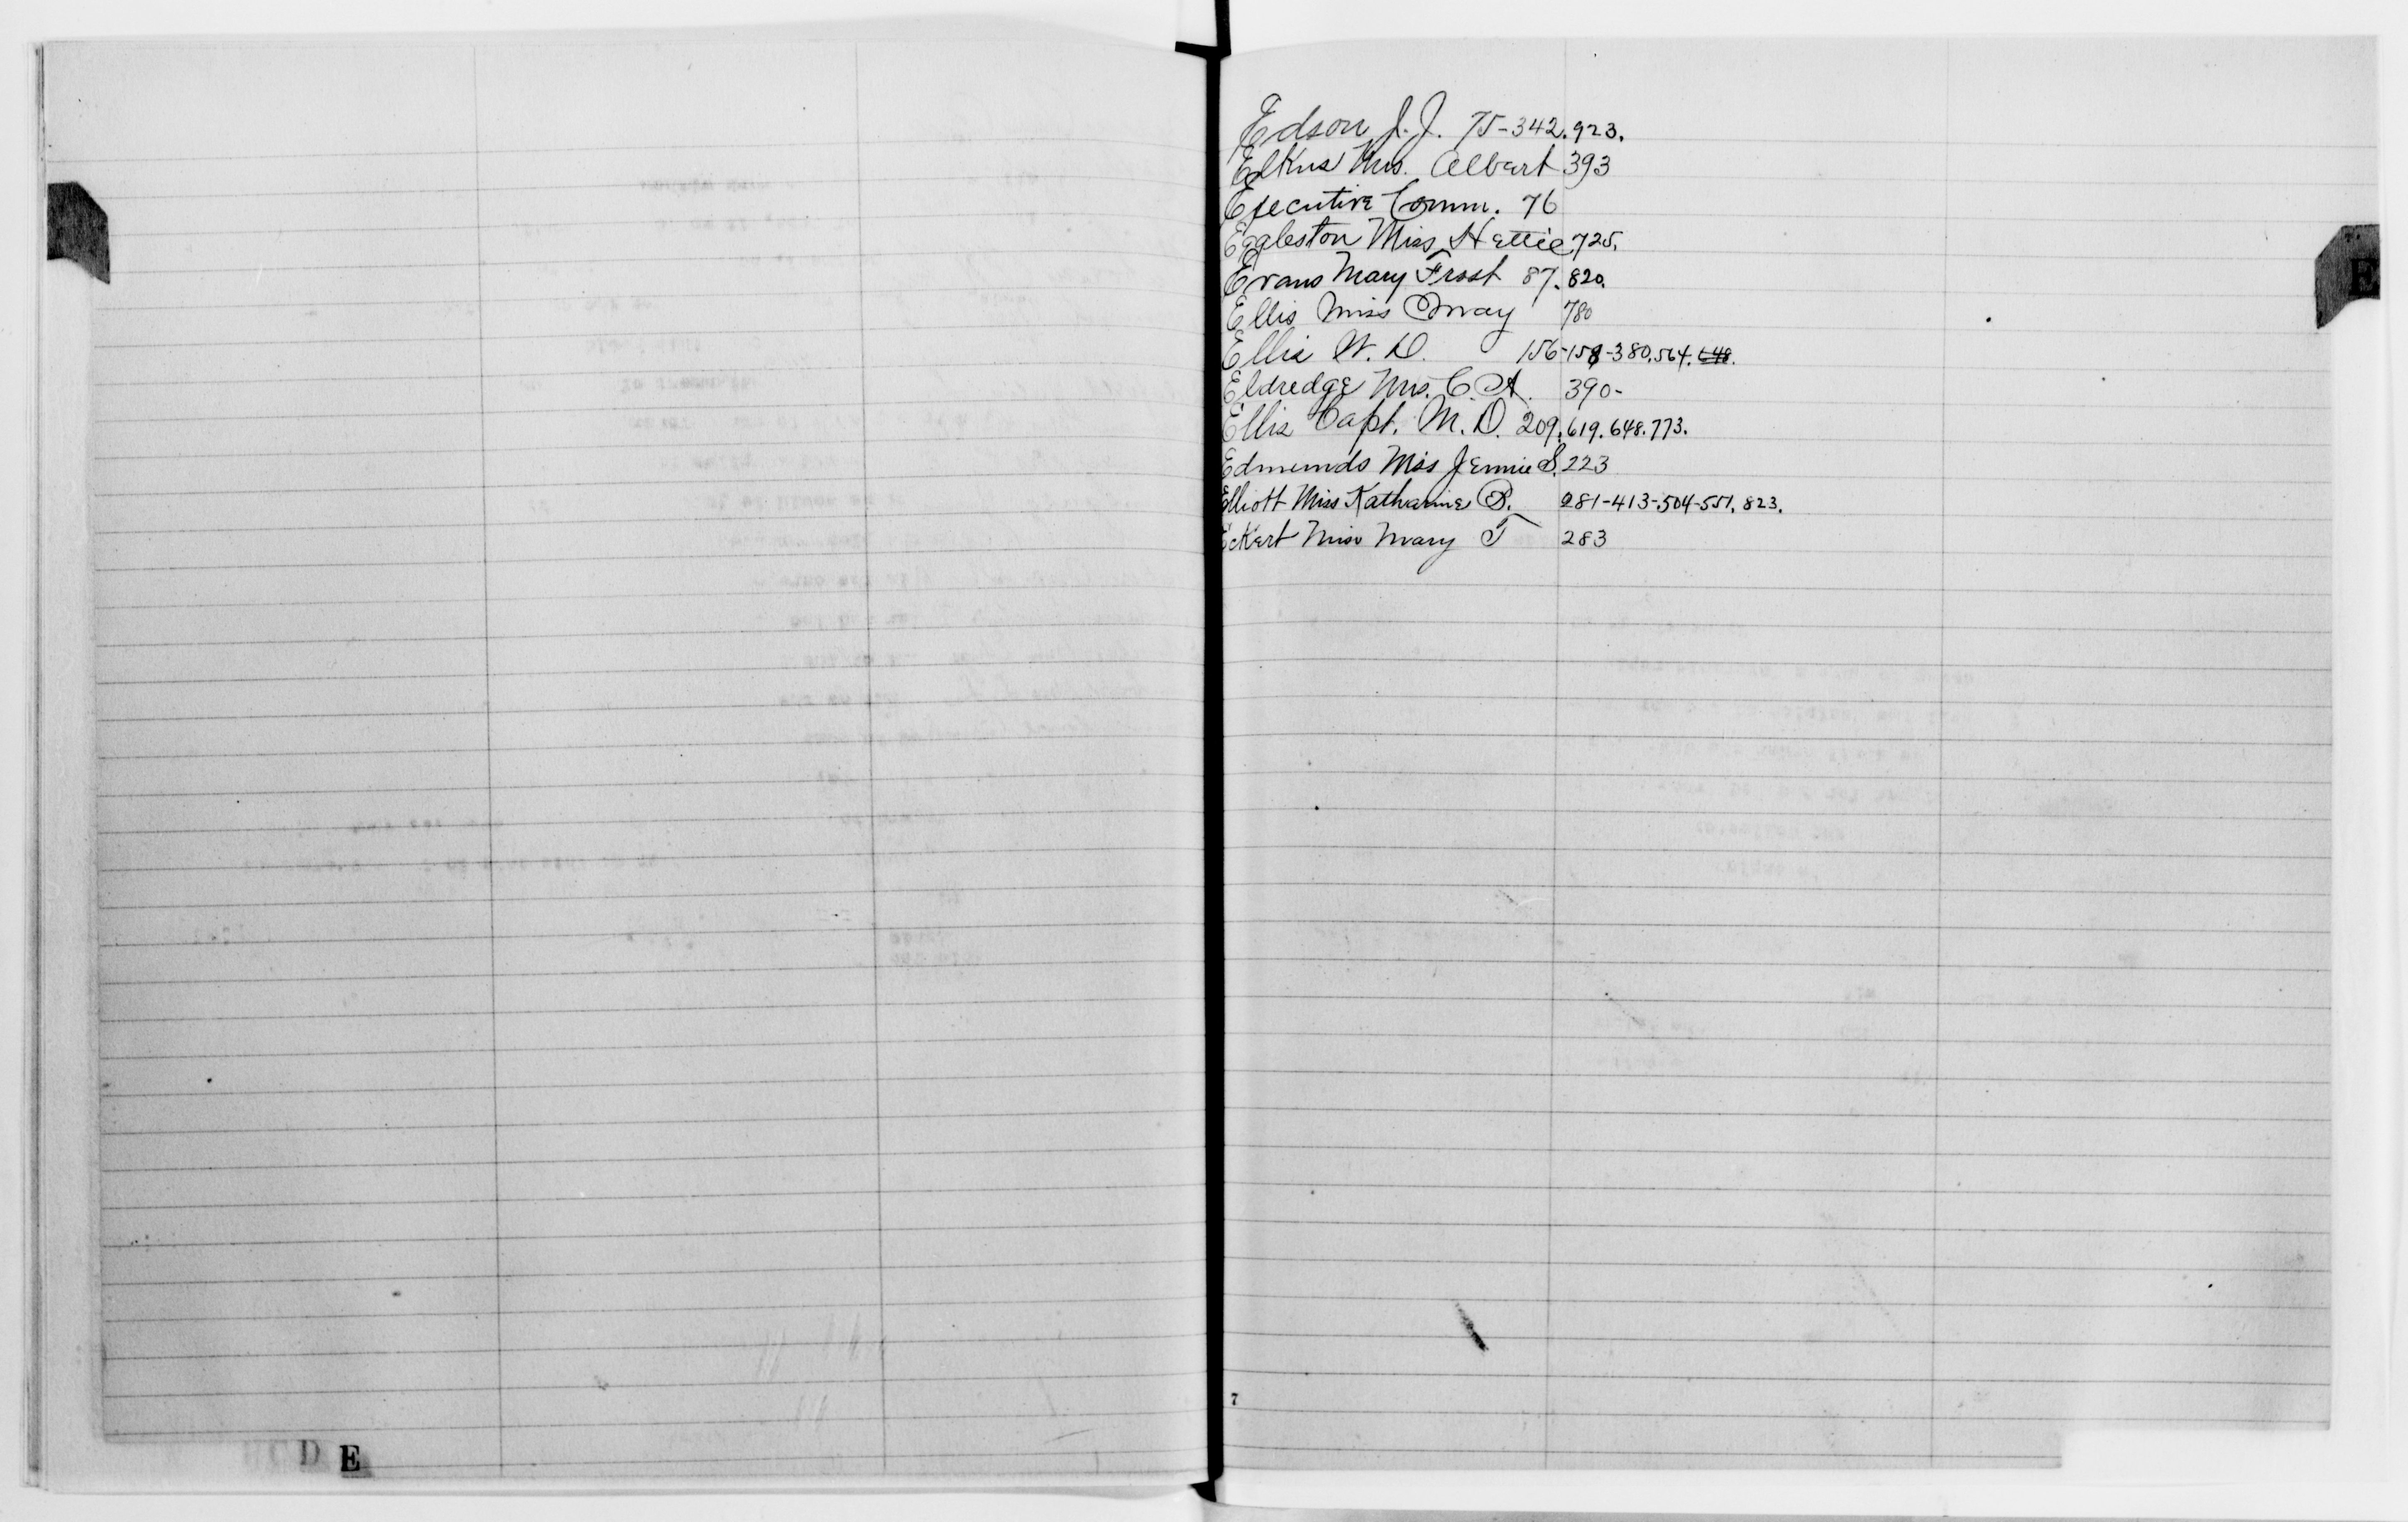 Edson J. J. 75-342.923.
Elkus Mrs. Albert 393
Executive Comm. 76
Eggleston Miss Hettie 725.
Evans Mary Frost 87. 820.
Ellis Miss May 780
Ellis W. D. 156-158-380.564. 648.
Eldredge Mrs. C. A. 390-
Ellis Capt. M. D. 209.619.648.773.
Edmunds Miss Jennie S. 223
Elliott Miss Katharine B. 281-413-504-551. 823.
Eckert Miss Mary T 283
E
7
B C D E